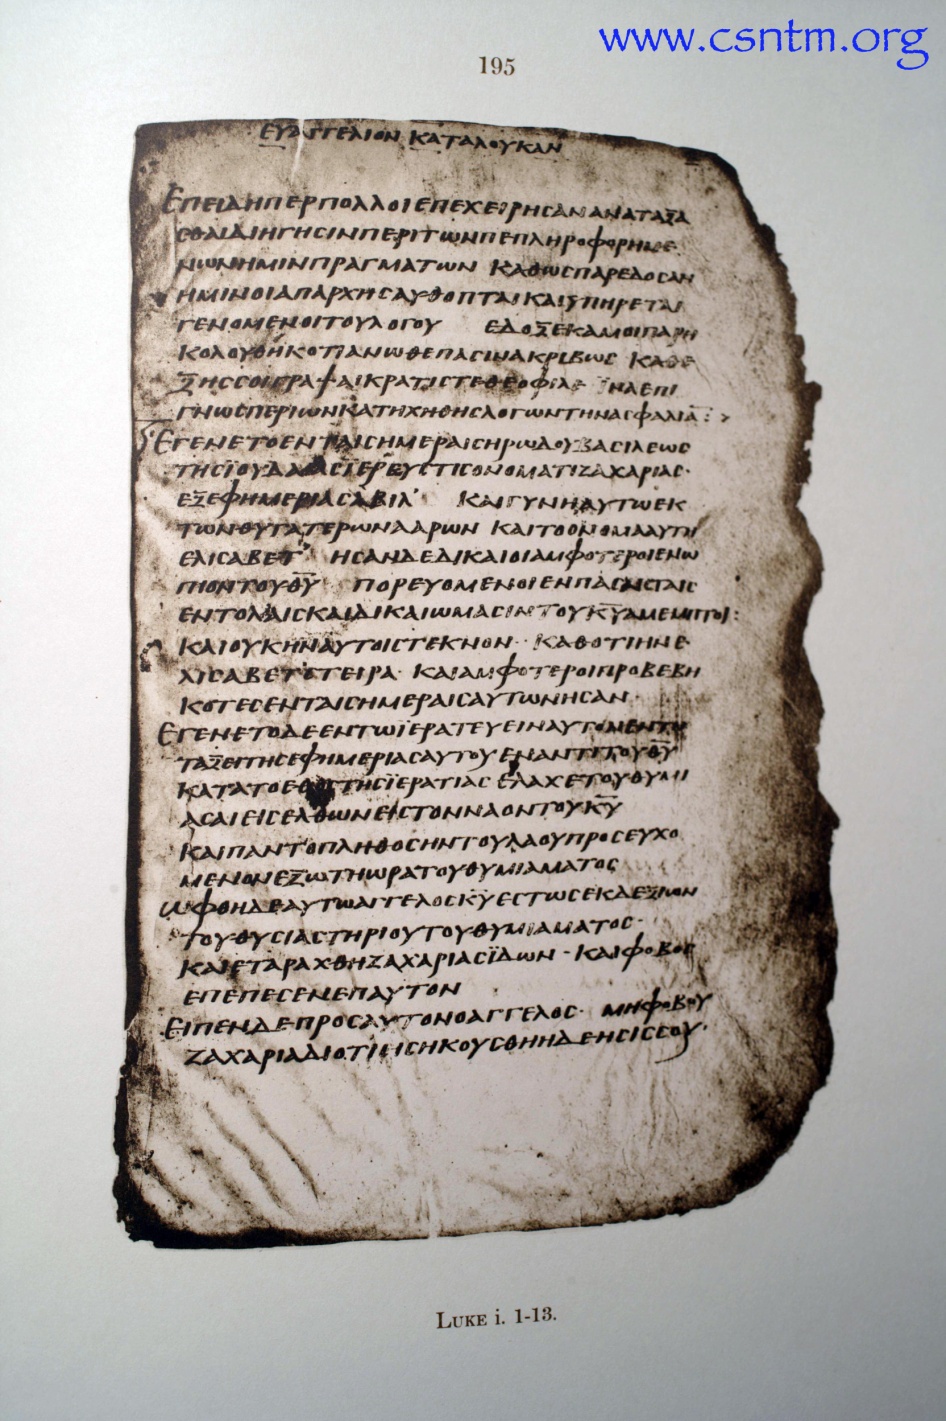 www.csntm.org
195
ΕΥΑΓΓΕΛΙΟΝ ΚΑΤΑΛΟΥΚΑΝ
ΕΠΕΙΔΗΠΕΡΠΟΛΛΟΙΕΠΕΧΕΙΡΗCΑΝΑΝΑΤΑΞΑ
CΘΑΙΔΙΗΓΗCΙΝΠΕΡΙΤΩΝΠΕΠΛΗΡΟΦΟΡΗΜΕ
ΝΩΝΗΜΙΝΠΡΑΓΜΑΤΩΝ ΚΑΘΩCΠΑΡΕΔΟCΑΝ
ΗΜΙΝΟΙΑΠΑΡΧΗCΑΥΘΟΠΤΑΙΚΑΙΥΠΗΡΕΤΑΙ
ΓΕΝΟΜΕΝΟΙΤΟΥΛΟΓΟΥ ΕΔΟΞΕΚΑΜΟΙΠΑΡΗ
ΚΟΛΟΥΘΗΚΟΤΙΑΝΩΘΕΠΑCΙΝΑΚΡΙΒΩC ΚΑΘΕ
ΞΗCCΟΙΓΡΑΨΑΙΚΡΑΤΙCΤΕΘΕΟΦΙΛΕ ΙΝΑΕΠΙ
ΓΝΩCΠΕΡΙΩΝΚΑΤΗΧΗΘΗCΛΟΓΩΝΤΗΝΑCΦΑΛΙΑ
ΕΓΕΝΕΤΟΕΝΤΑΙCΗΜΕΡΑΙCΗΡΩΔΟΥΒΑCΙΛΕΩC
ΤΗCΪΟΥΔΑΙΑCΪΕΡΕΥCΤΙCΟΝΟΜΑΤΙΖΑΧΑΡΙΑC·
ΕΞΕΦΗΜΕΡΙΑCΑΒΙΑ' ΚΑΙΓΥΝΗΑΥΤΩΕΚ
ΤΩΝΘΥΓΑΤΕΡΩΝΑΑΡΩΝ ΚΑΙΤΟΟΝΟΜΑΑΥΤΗ
ΕΛΙCΑΒΕΤ' ΗCΑΝΔΕΔΙΚΑΙΟΙΑΜΦΟΤΕΡΟΙΕΝΩ
ΠΙΟΝΤΟΥΘ̅Υ̅ ΠΟΡΕΥΟΜΕΝΟΙΕΝΠΑCΑΙCΤΑΙC
ΕΝΤΟΛΑΙCΚΑΙΔΙΚΑΙΩΜΑCΙΝΤΟΥΚ̅Υ̅ΑΜΕΜΠΤΟΙ:
ΚΑΙΟΥΚΗΝΑΥΤΟΙCΤΕΚΝΟΝ· ΚΑΘΟΤΙΗΝΕ
ΛΙCΑΒΕΤ'CΤΕΙΡΑ· ΚΑΙΑΜΦΟΤΕΡΟΙΠΡΟΒΕΒΗ
ΚΟΤΕCΕΝΤΑΙCΗΜΕΡΑΙCΑΥΤΩΝΗCΑΝ·
ΕΓΕΝΕΤΟΔΕΕΝΤΩΪΕΡΑΤΕΥΕΙΝΑΥΤΟΝΕΝΤΗ
ΤΑΞΕΙΤΗCΕΦΗΜΕΡΙΑCΑΥΤΟΥΕΝΑΝΤΙΤΟΥΘ̅Υ̅
ΚΑΤΑΤΟΕΘΟCΤΗCΪΕΡΑΤΙΑC ΕΛΑΧΕΤΟΥΘΥΜΙ
ΑCΑΙΕΙCΕΛΘΩΝΕΙCΤΟΝΝΑΟΝΤΟΥΚ̅Υ̅
ΚΑΙΠΑΝΤΟΠΛΗΘΟCΗΝΤΟΥΛΑΟΥΠΡΟCΕΥΧΟ
ΜΕΝΟΝΕΞΩΤΗΩΡΑΤΟΥΘΥΜΙΑΜΑΤΟC
ΩΦΘΗΔΕΑΥΤΩΑΓΓΕΛΟCΚ̅Υ̅ΕCΤΩCΕΚΔΕΞΙΩΝ
ΤΟΥΘΥCΙΑCΤΗΡΙΟΥΤΟΥΘΥΜΙΑΜΑΤΟC·
ΚΑΙΕΤΑΡΑΧΘΗΖΑΧΑΡΙΑCΪΔΩΝ· ΚΑΙΦΟΒΟC
ΕΠΕΠΕCΕΝΕΠΑΥΤΟΝ
ΕΙΠΕΝΔΕΠΡΟCΑΥΤΟΝΟΑΓΓΕΛΟC· ΜΗΦΟΒΟΥ
ΖΑΧΑΡΙΑΔΙΟΤΙΕΙCΗΚΟΥCΘΗΗΔΕΗCΙCCΟΥ·
LUKE i. 1-13.